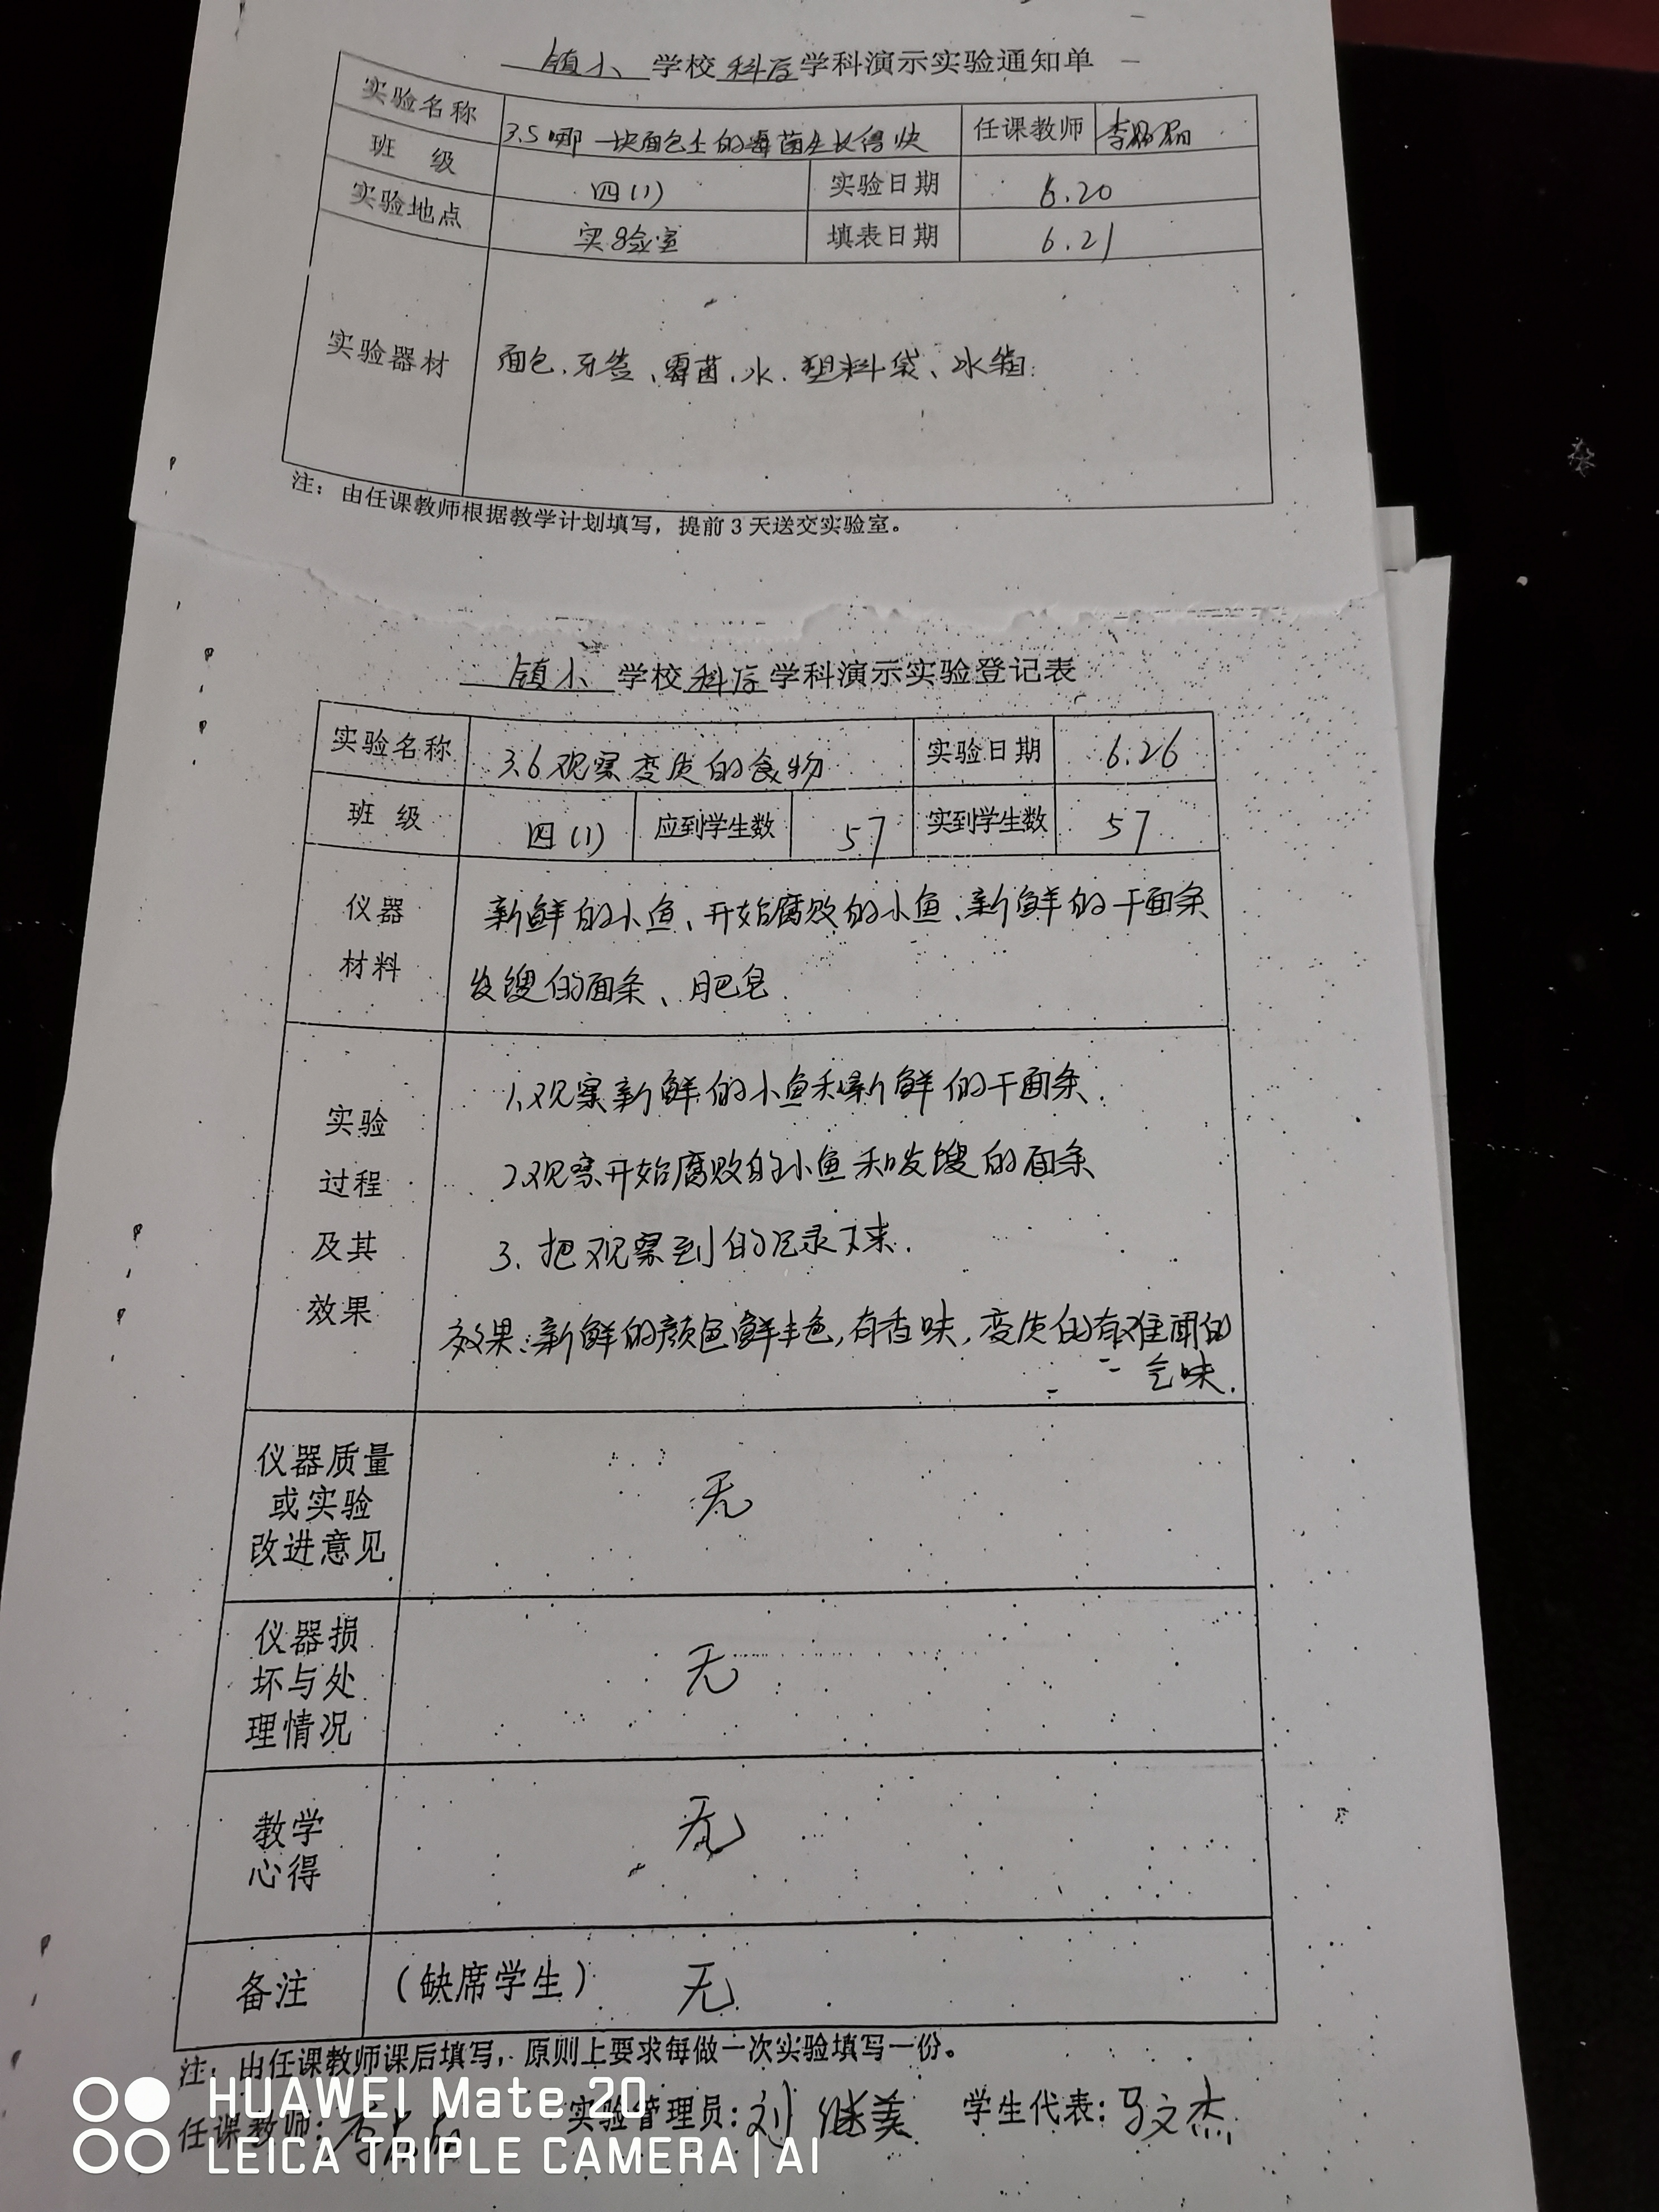 镇小 学校 科学 学科演示实验通知单
实验名称 3.5哪一块面包上的霉菌生长得快 任课教师
班 级 四(1) 实验日期 6.20
实验地点 实验室 填表日期 6.21
实验器材 面包、牙签、霉菌、水、塑料袋、冰箱.
注：由任课教师根据教学计划填写，提前3天送交实验室。
镇小 学校 科学 学科演示实验登记表
实验名称 3.6观察变质的食物 实验日期 6.26
班 级 四(1) 应到学生数 57 实到学生数 57
仪器 新鲜的小鱼、开始腐败的小鱼、新鲜的干面条
材料 发馊的面条、肥皂
1、观察新鲜的小鱼和新鲜的干面条.
实验
2观察开始腐败的小鱼和发馊的面条
过程
及其 3. 把观察到的记录下来.
效果 效果:新鲜的颜色鲜丰色,有香味,变质的有难闻的
气味.
仪器质量
或实验 无
改进意见
仪器损
坏与处 无
理情况
教学 无
心得
备注 (缺席学生) 无
注：由任课教师课后填写，原则上要求每做一次实验填写一份。
任课教师: 实验管理员:刘继美 学生代表:马文杰
HUAWEI Mate 20
LEICA TRIPLE CAMERA | AI